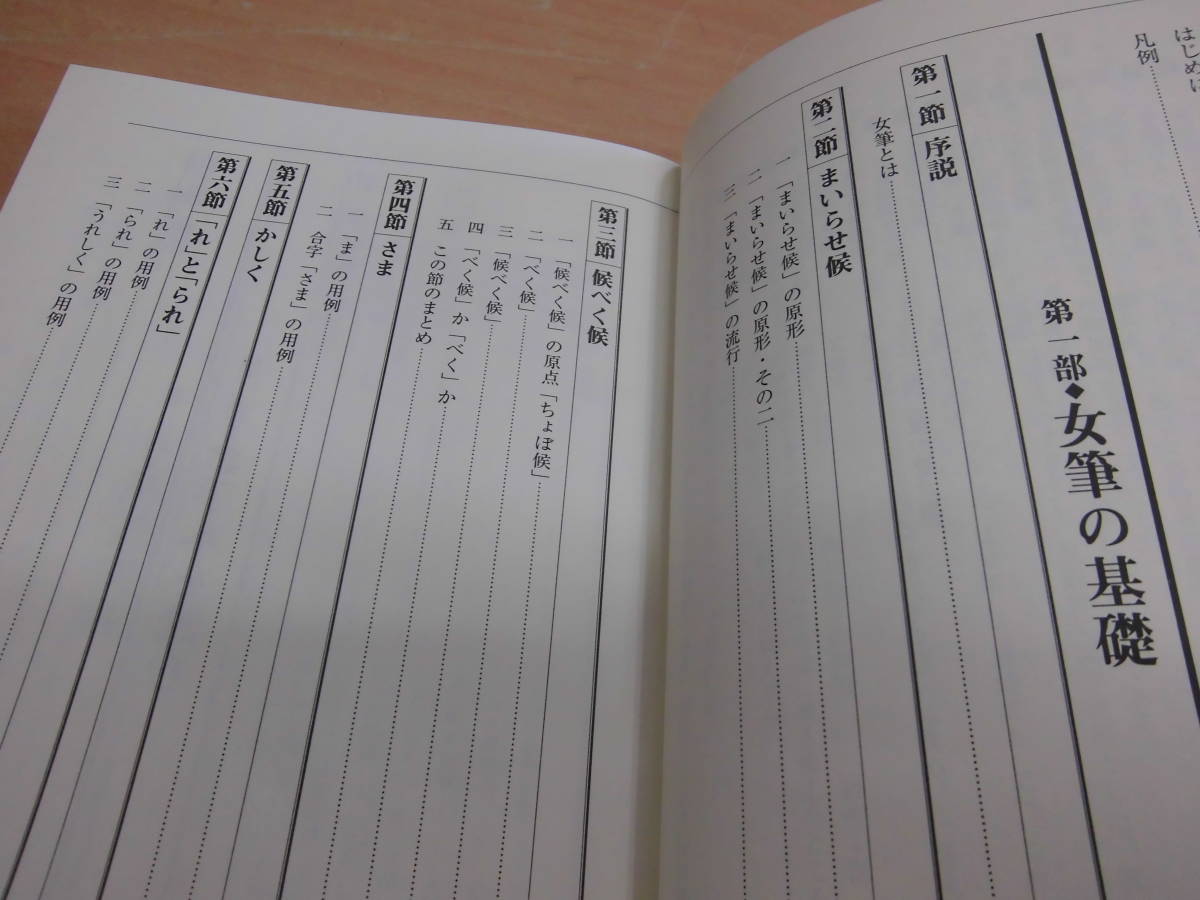 はじめに
凡例
第一部◆女筆の基礎
第一節 序説
女筆とは
第二節 まいらせ候
一 「まいらせ候」の原形
二 「まいらせ候」の原形・その二
三 「まいらせ候」の流行
第三節 候べく候
一 「候べく候」の原点「ちょぼ候」
二 「べく候」
三 「候べく候」
四 「べく候」か「べく」か
五 この節のまとめ
第四節 さま
一 「ま」の用例
二 合字「さま」の用例
第五節 かしく
第六節 「れ」と「られ」
一 「れ」の用例
二 「られ」の用例
三 「うれしく」の用例